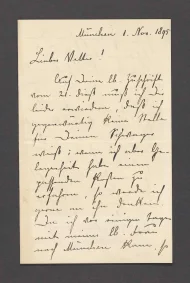 München 1. Nov. 1895
Lieber Vetter!
Auf Deine lb. Zuschrift
vom 21. dieß muß ich Dir
leider erwiedern, daß ich
gegenwärtig keine Stelle
für Deinen Schwager
weiß; wenn ich aber Ge-
legenheit habe einen
passenden Posten zu
erfahren, so werde ich
gerne an ihn denken.
Da ich vor einigen Tagen
mit meiner lb. Frau
nach München kam, so